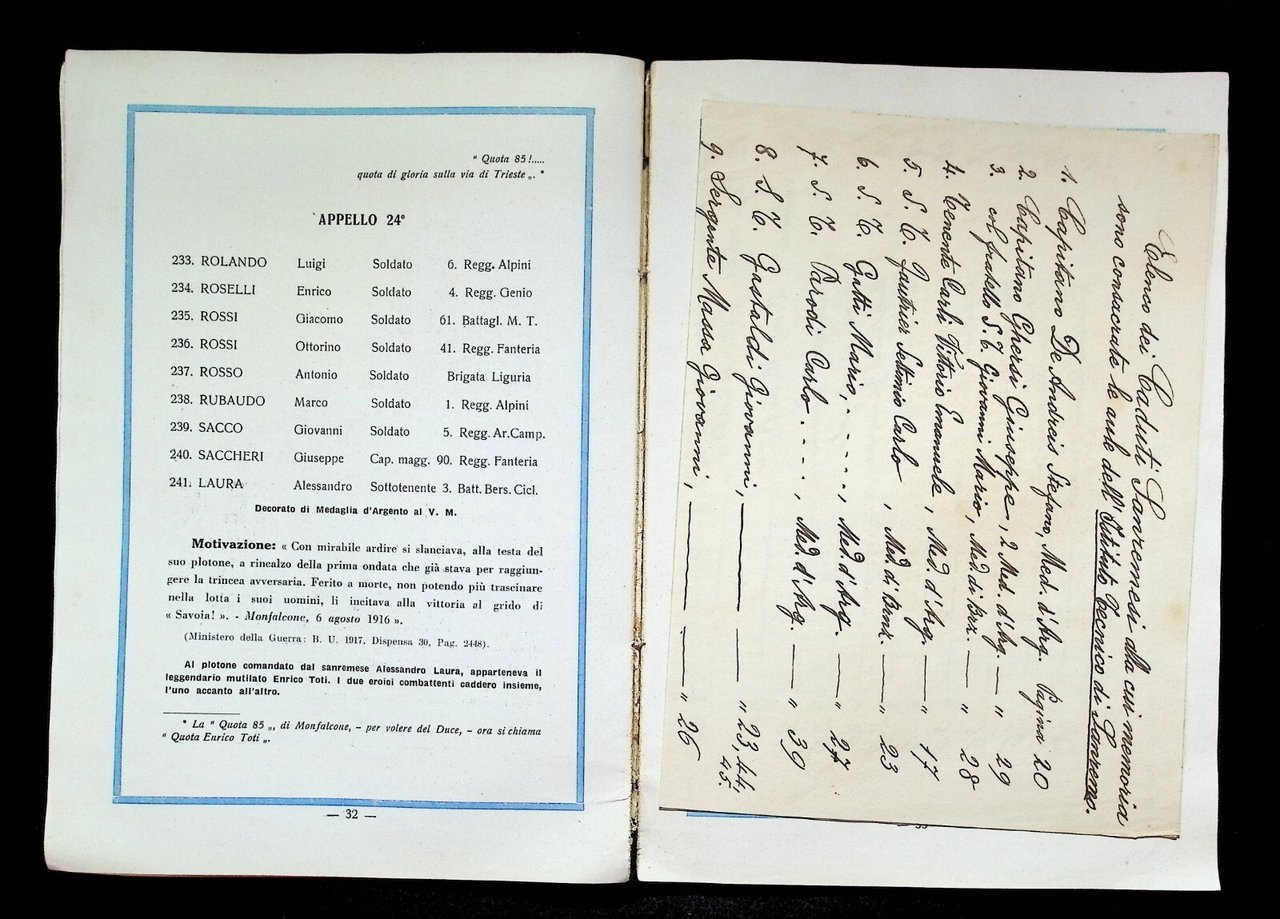 " Quota 85!.....
quota di gloria sulla via di Trieste „. *
APPELLO 24°
233. ROLANDO Luigi Soldato 6. Regg. Alpini
234. ROSELLI Enrico Soldato 4. Regg. Genio
235. ROSSI Giacomo Soldato 61. Battagl. M. T.
236. ROSSI Ottorino Soldato 41. Regg. Fanteria
237. ROSSO Antonio Soldato Brigata Liguria
238. RUBAUDO Marco Soldato 1. Regg. Alpini
239. SACCO Giovanni Soldato 5. Regg. Ar.Camp.
240. SACCHERI Giuseppe Cap. magg. 90. Regg. Fanteria
241. LAURA Alessandro Sottotenente 3. Batt. Bers. Cicl.
Decorato di Medaglia d'Argento al V. M.
Motivazione: « Con mirabile ardire si slanciava, alla testa del
suo plotone, a rincalzo della prima ondata che già stava per raggiun-
gere la trincea avversaria. Ferito a morte, non potendo più trascinare
nella lotta i suoi uomini, li incitava alla vittoria al grido di
« Savoia! ». - Monfalcone, 6 agosto 1916 ».
(Ministero della Guerra: B. U. 1917, Dispensa 30, Pag. 2448).
Al plotone comandato dal sanremese Alessandro Laura, apparteneva il
leggendario mutilato Enrico Toti. I due eroici combattenti caddero insieme,
l'uno accanto all'altro.
* La " Quota 85 „, di Monfalcone, - per volere del Duce, - ora si chiama
" Quota Enrico Toti „.
— 32 —
Elenco dei Caduti Sanremesi alla cui memoria
sono consacrate le aule dell'Istituto Tecnico di Sanremo.
1. Capitano De Andreis Stefano, Med. d'Arg. Pagina 20
2. Capitano Ghersi Giuseppe, 2 Med. d'Arg. — " 29
3. col fratello S. T. Giovanni Mario, Med. di Brz. — " 28
4. Tenente Carli Vittorio Emanuele, Med. d'Arg. — " 17
5. S. T. Gautrier Settimio Carlo, Med. di Bronz. — " 23
6. S. T. Gatti Mario, - - - - -, Med. d'Arg. — " 27
7. S. T. Parodi Carlo . - - - ., Med. d'Arg. — " 39
8. S. T. Gastaldi Giovanni, — — " 23, 44,
45.
9. Sergente Massa Giovanni, — — " 26